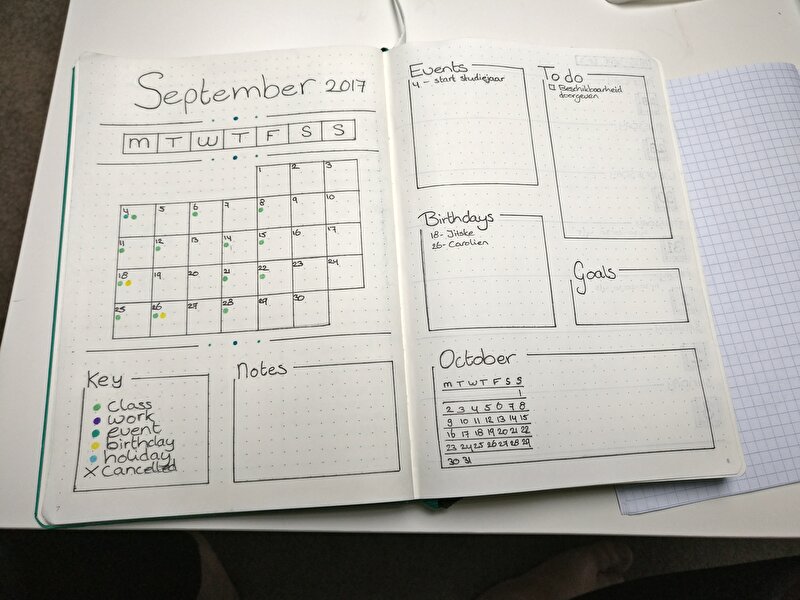 September 2017
M T W T F S S
1 2 3
4 5 6 7 8 9 10
11 12 13 14 15 16 17
18 19 20 21 22 23 24
25 26 27 28 29 30
Key
Class
work
event
birthday
holiday
X Cancelled
Notes
Events
4 - start studiejaar
To do
Beschikbaarheid
doorgeven
Birthdays
18- Jitske
26- Carolien
Goals
October
M T W T F S S
1
2 3 4 5 6 7 8
9 10 11 12 13 14 15
16 17 18 19 20 21 22
23 24 25 26 27 28 29
30 31
7
8